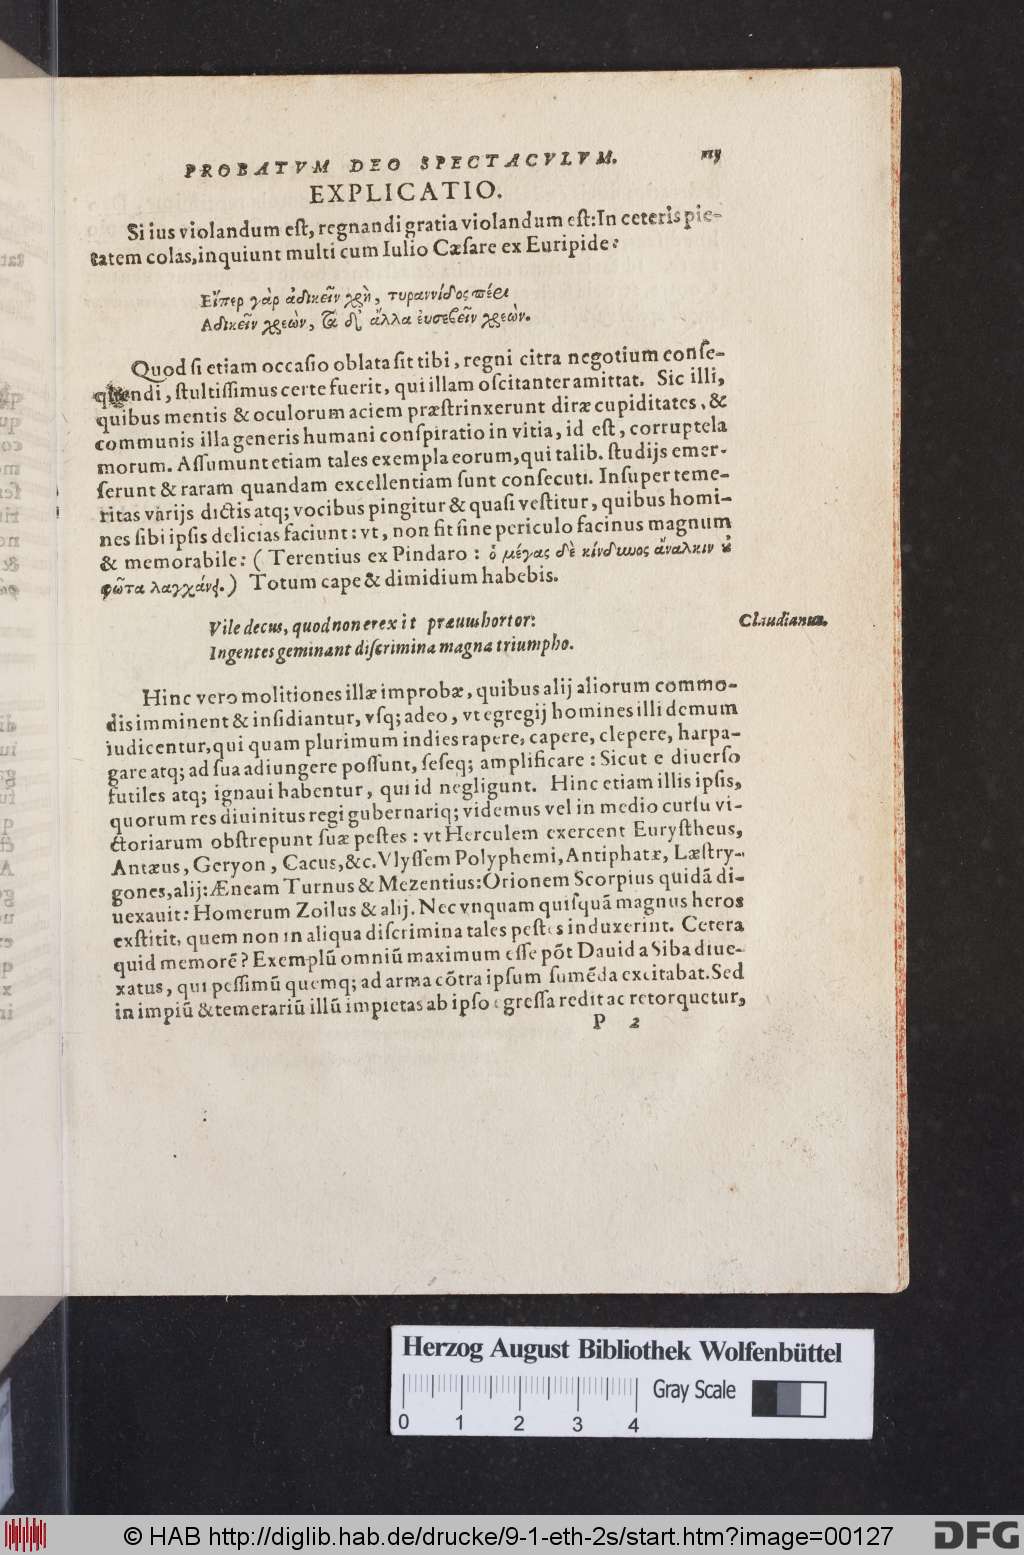 PROBATVM DEO SPECTACVLVM.
EXPLICATIO.
Si ius violandum eſt, regnandi gratia violandum eſt: In ceteris pie-
tatem colas, inquiunt multi cum Iulio Cæſare ex Euripide:
Εἴπερ γὰρ ἀδικεῖν χρὴ, τυραννίδος πέρι
Αδικεῖν χρεὼν, τὰ δ' ἄλλα ἐυσεβεῖν χρεών.
Quod ſi etiam occaſio oblata ſit tibi, regni citra negotium conſe-
quendi, ſtultiſſimus certe fuerit, qui illam oſcitanter amittat. Sic illi,
quibus mentis & oculorum aciem præſtrinxerunt diræ cupiditates, &
communis illa generis humani conſpiratio in vitia, id eſt, corruptela
morum. Aſſumunt etiam tales exempla eorum, qui talib. ſtudijs emer-
ſerunt & raram quandam excellentiam ſunt conſecuti. Inſuper teme-
ritas varijs dictis atq; vocibus pingitur & quaſi veſtitur, quibus homi-
nes ſibi ipſis delicias faciunt: vt, non fit ſine periculo facinus magnum
& memorabile: (Terentius ex Pindaro: ὁ μέγας δὲ κίνδυνος ἄναλκιν ȣ̓
φῶτα λαγχάνει.) Totum cape & dimidium habebis.
Vile decus, quod non erexit præuius hortor:
Claudianus.
Ingentes geminant diſcrimina magna triumpho.
Hinc vero molitiones illæ improbæ, quibus alij aliorum commo-
dis imminent & inſidiantur, vſq; adeo, vt egregij homines illi demum
iudicentur, qui quam plurimum indies rapere, capere, clepere, harpa-
gare atq; ad ſua adiungere poſſunt, ſeſeq; amplificare: Sicut e diuerſo
futiles atq; ignaui habentur, qui id negligunt. Hinc etiam illis ipſis,
quorum res diuinitus regi gubernariq; videmus vel in medio curſu vi-
ctoriarum obſtrepunt ſuæ peſtes: vt Herculem exercent Euryſtheus,
Antæus, Geryon, Cacus, &c. Vlyſſem Polyphemi, Antiphatæ, Læſtry-
gones, alij: Æneam Turnus & Mezentius: Orionem Scorpius quidã di-
uexauit: Homerum Zoilus & alij. Nec vnquam quiſquã magnus heros
exſtitit, quem non in aliqua diſcrimina tales peſtes induxerint. Cetera
quid memorẽ? Exemplũ omniũ maximum eſſe põt Dauid a Siba diue-
xatus, qui peſſimũ quemq; ad arma cõtra ipſum ſumẽda excitabat. Sed
in impiũ & temerariũ illũ impietas ab ipſo egreſſa redit ac retorquetur,
P 2
Herzog August Bibliothek Wolfenbüttel
Gray Scale
0 1 2 3 4
© HAB http://diglib.hab.de/drucke/9-1-eth-2s/start.htm?image=00127
DFG